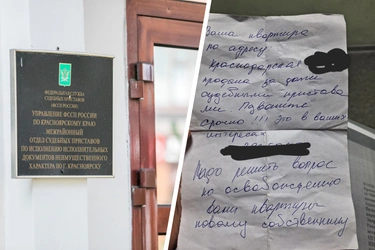 ФЕДЕРАЛЬНАЯ СЛУЖБА
СУДЕБНЫХ ПРИСТАВОВ
(ФССП РОССИИ)
УПРАВЛЕНИЕ ФССП РОССИИ
ПО КРАСНОЯРСКОМУ КРАЮ
МЕЖРАЙОННЫЙ
ОТДЕЛ СУДЕБНЫХ ПРИСТАВОВ
ПО ИСПОЛНЕНИЮ ИСПОЛНИТЕЛЬНЫХ
ДОКУМЕНТОВ НЕИМУЩЕСТВЕННОГО
ХАРАКТЕРА ПО Г. КРАСНОЯРСКУ
Ваша квартира
по адресу
Краснодарская
продана за долги
судебными пристава
ми
срочно !!! Это в ваших
интересах
Надо решить вопрос
по освобождению
вами квартиры
новому собственнику